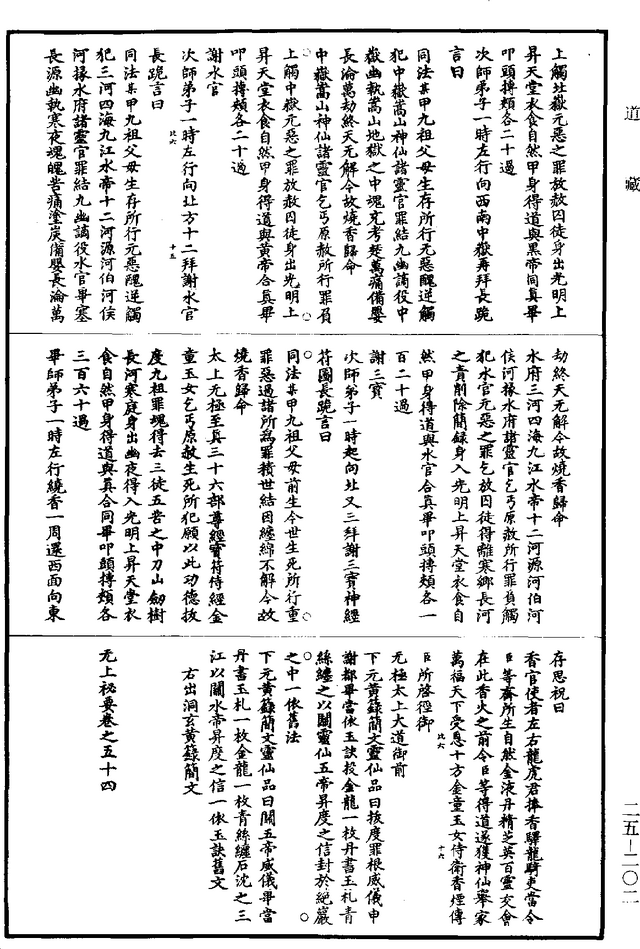 道藏
上觸北嶽元惡之罪放赦囚徒身出光明上
昇天堂衣食自然甲身得道與黑帝同真畢
叩頭摶頰各二十過
次師弟子一時左行向西南中嶽再拜長跪
言曰
同法某甲九祖父母生存所行元惡醜逆觸
犯中嶽嵩山神仙諸靈官罪結九幽謫役中
嶽幽執嵩山地獄之中魂充考楚萬痛備嬰
長淪萬劫終天无解今故燒香歸命
中嶽嵩山神仙諸靈官乞丐原赦所行罪負
上觸中嶽元惡之罪放赦囚徒身出光明上
昇天堂衣食自然甲身得道與黃帝合真畢
叩頭摶頰各二十過
謝水官
次師弟子一時左行向北方十二拜謝水官
比六 十五
長跪言曰
同法某甲九祖父母生存所行元惡醜逆觸
犯三河四海九江水帝十二河源河伯河侯
河掾水府諸靈官罪結九幽謫役水官畢塞
長源幽執寒夜魂魄苦痛塗炭備嬰長淪萬
劫終天无解今故燒香歸命
水府三河四海九江水帝十二河源河伯河
侯河掾水府諸靈官乞丐原赦所行罪負觸
犯水官元惡之罪乞放囚徒得離寒鄉長河
之責削除簡録身入光明上昇天堂衣食自
然甲身得道與水官合真畢叩頭摶頰各一
百二十過
謝三寶
次師弟子一時起向北又三拜謝三寶神經
符圖長跪言曰
同法某甲九祖父母前生今世生死所行重
罪惡過諸所為罪積世結因纏綿不解今故
燒香歸命
太上无極至真三十六部尊經寶符侍經金
童玉女乞丐原赦生死所犯願以此功德拔
度九祖罪魂得去三徒五苦之中刀山劒樹
長河寒庭身出幽夜得入光明上昇天堂衣
食自然甲身得道與真合同畢叩頭摶頰各
三百六十過
畢師弟子一時左行繞香一周還西面向東
存思祝曰
香官使者左右龍虎君捧香驛龍騎吏當令
臣等齋所生自然金液丹精芝英百靈交會
在此香火之前令臣等得道遂獲神仙舉家
萬福天下受恩十方金童玉女侍衛香煙傳
臣所啓徑御
比六 十六
无極太上大道御前
下元黃籙簡文靈仙品曰拔度罪根威儀申
謝都畢當依玉訣投金龍一枚丹書玉札青
絲纏之以關靈仙五帝昇度之信封於絕巖
之中一依舊法
下元黃籙簡文靈仙品曰關五帝威儀畢當
丹書玉札一枚金龍一枚青絲纏石沈之三
江以關水帝昇度之信一依玉訣舊文
右出洞玄黃籙簡文
无上祕要卷之五十四
二五－二〇二